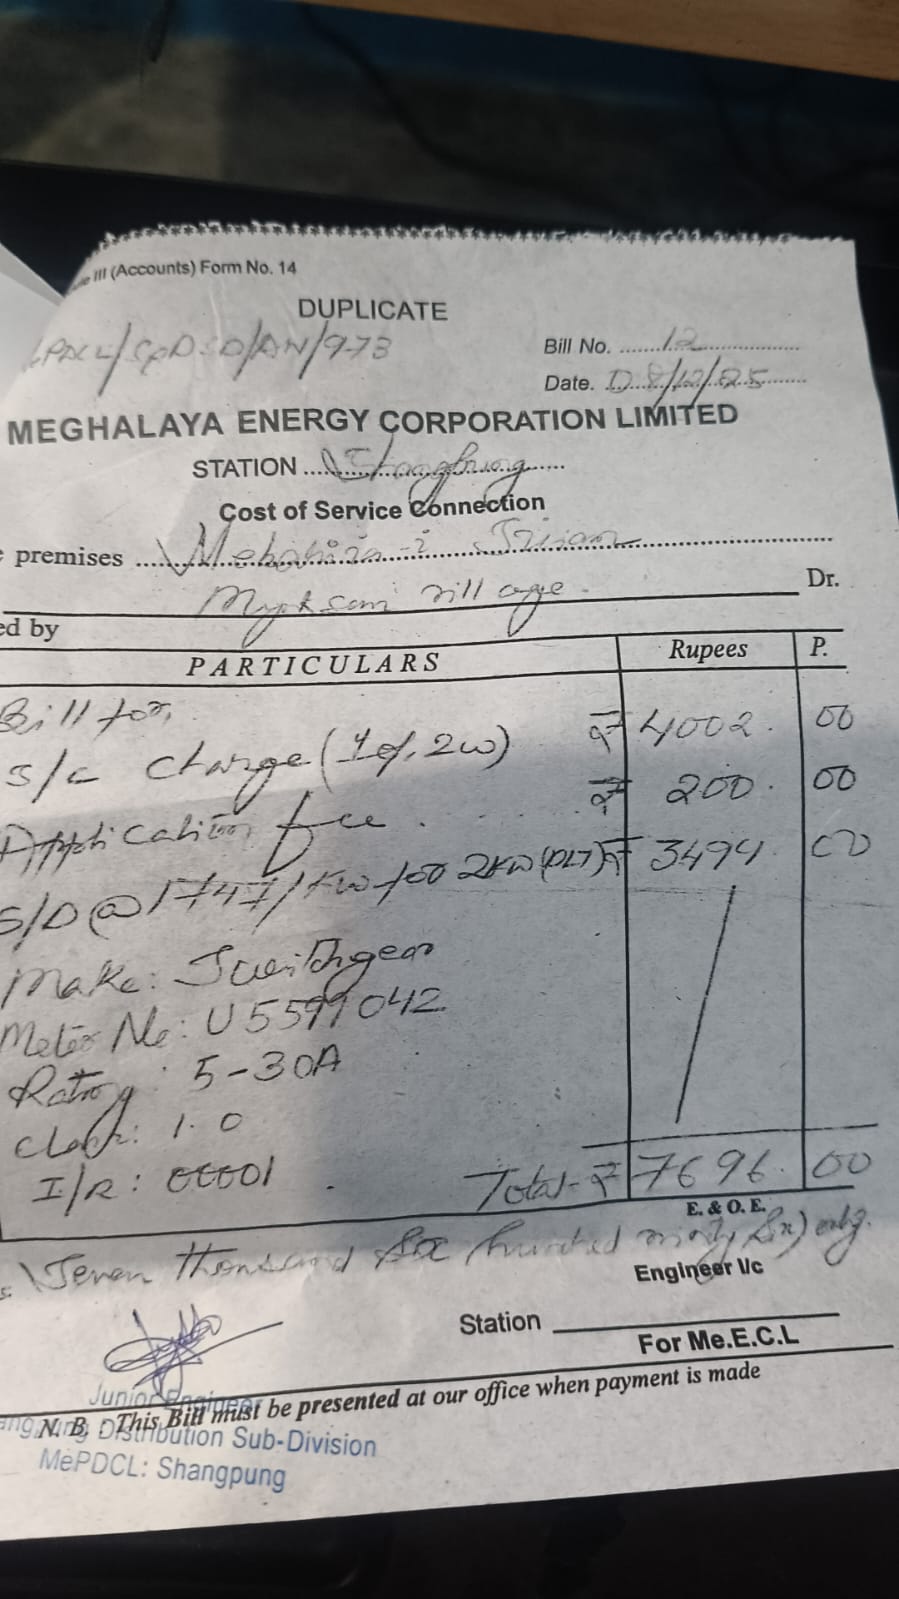 III (Accounts) Form No. 14
DUPLICATE
Bill No. 12
Date. D. 8/12/25
MEGHALAYA ENERGY CORPORATION LIMITED
STATION Shangpung
Cost of Service Connection
premises
village.
Dr.
ed by
PARTICULARS Rupees P.
Bill for,
S/C Charge (1φ, 2w) ₹ 4002. 00
Application fee . . . . ₹ 200. 00
S/D @ 1747/KW for 2KW (DLT) ₹ 3494. 00
Make:
Meter No: U5599042
Rating: 5-30A
Class: 1.0
I/R: 00001
Total- ₹ 7696. 00
E. & O. E.
Seven thousand Six hundred ninty Six) only.
Engineer I/c
Station
For Me.E.C.L
Junior Engineer
N. B. This Bill must be presented at our office when payment is made
Distribution Sub-Division
MePDCL: Shangpung